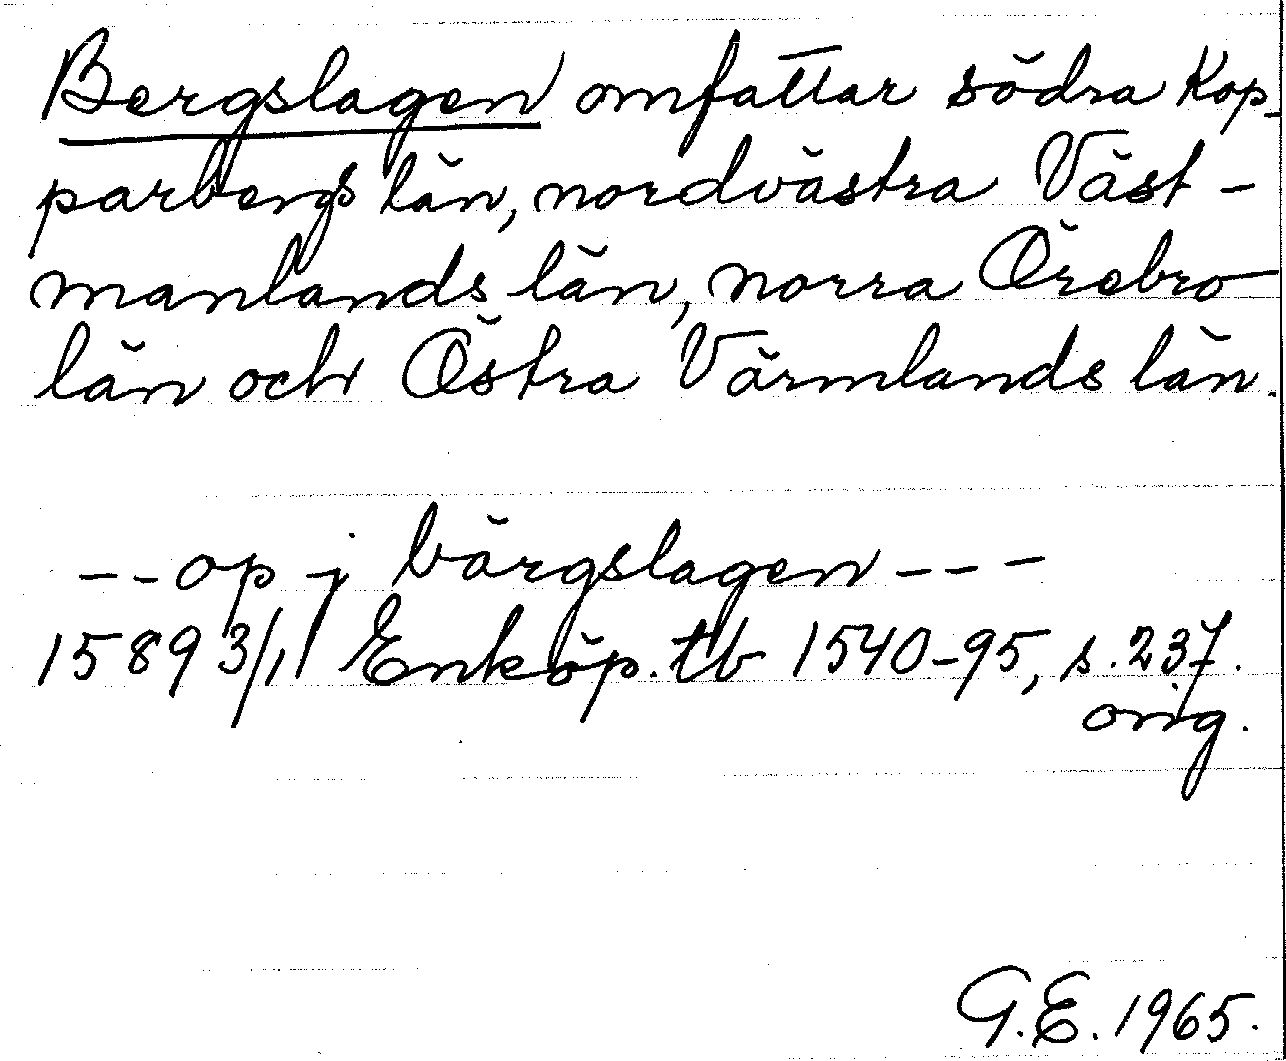 Bergslagen omfattar södra Kop-
parbergs län, nordvästra Väst-
manlands län, norra Örebro
län och Östra Värmlands län.
--op j bärgslagen---
1589 3/11 Enköp. tb 1540-95, s. 237.
orig.
G.E. 1965.